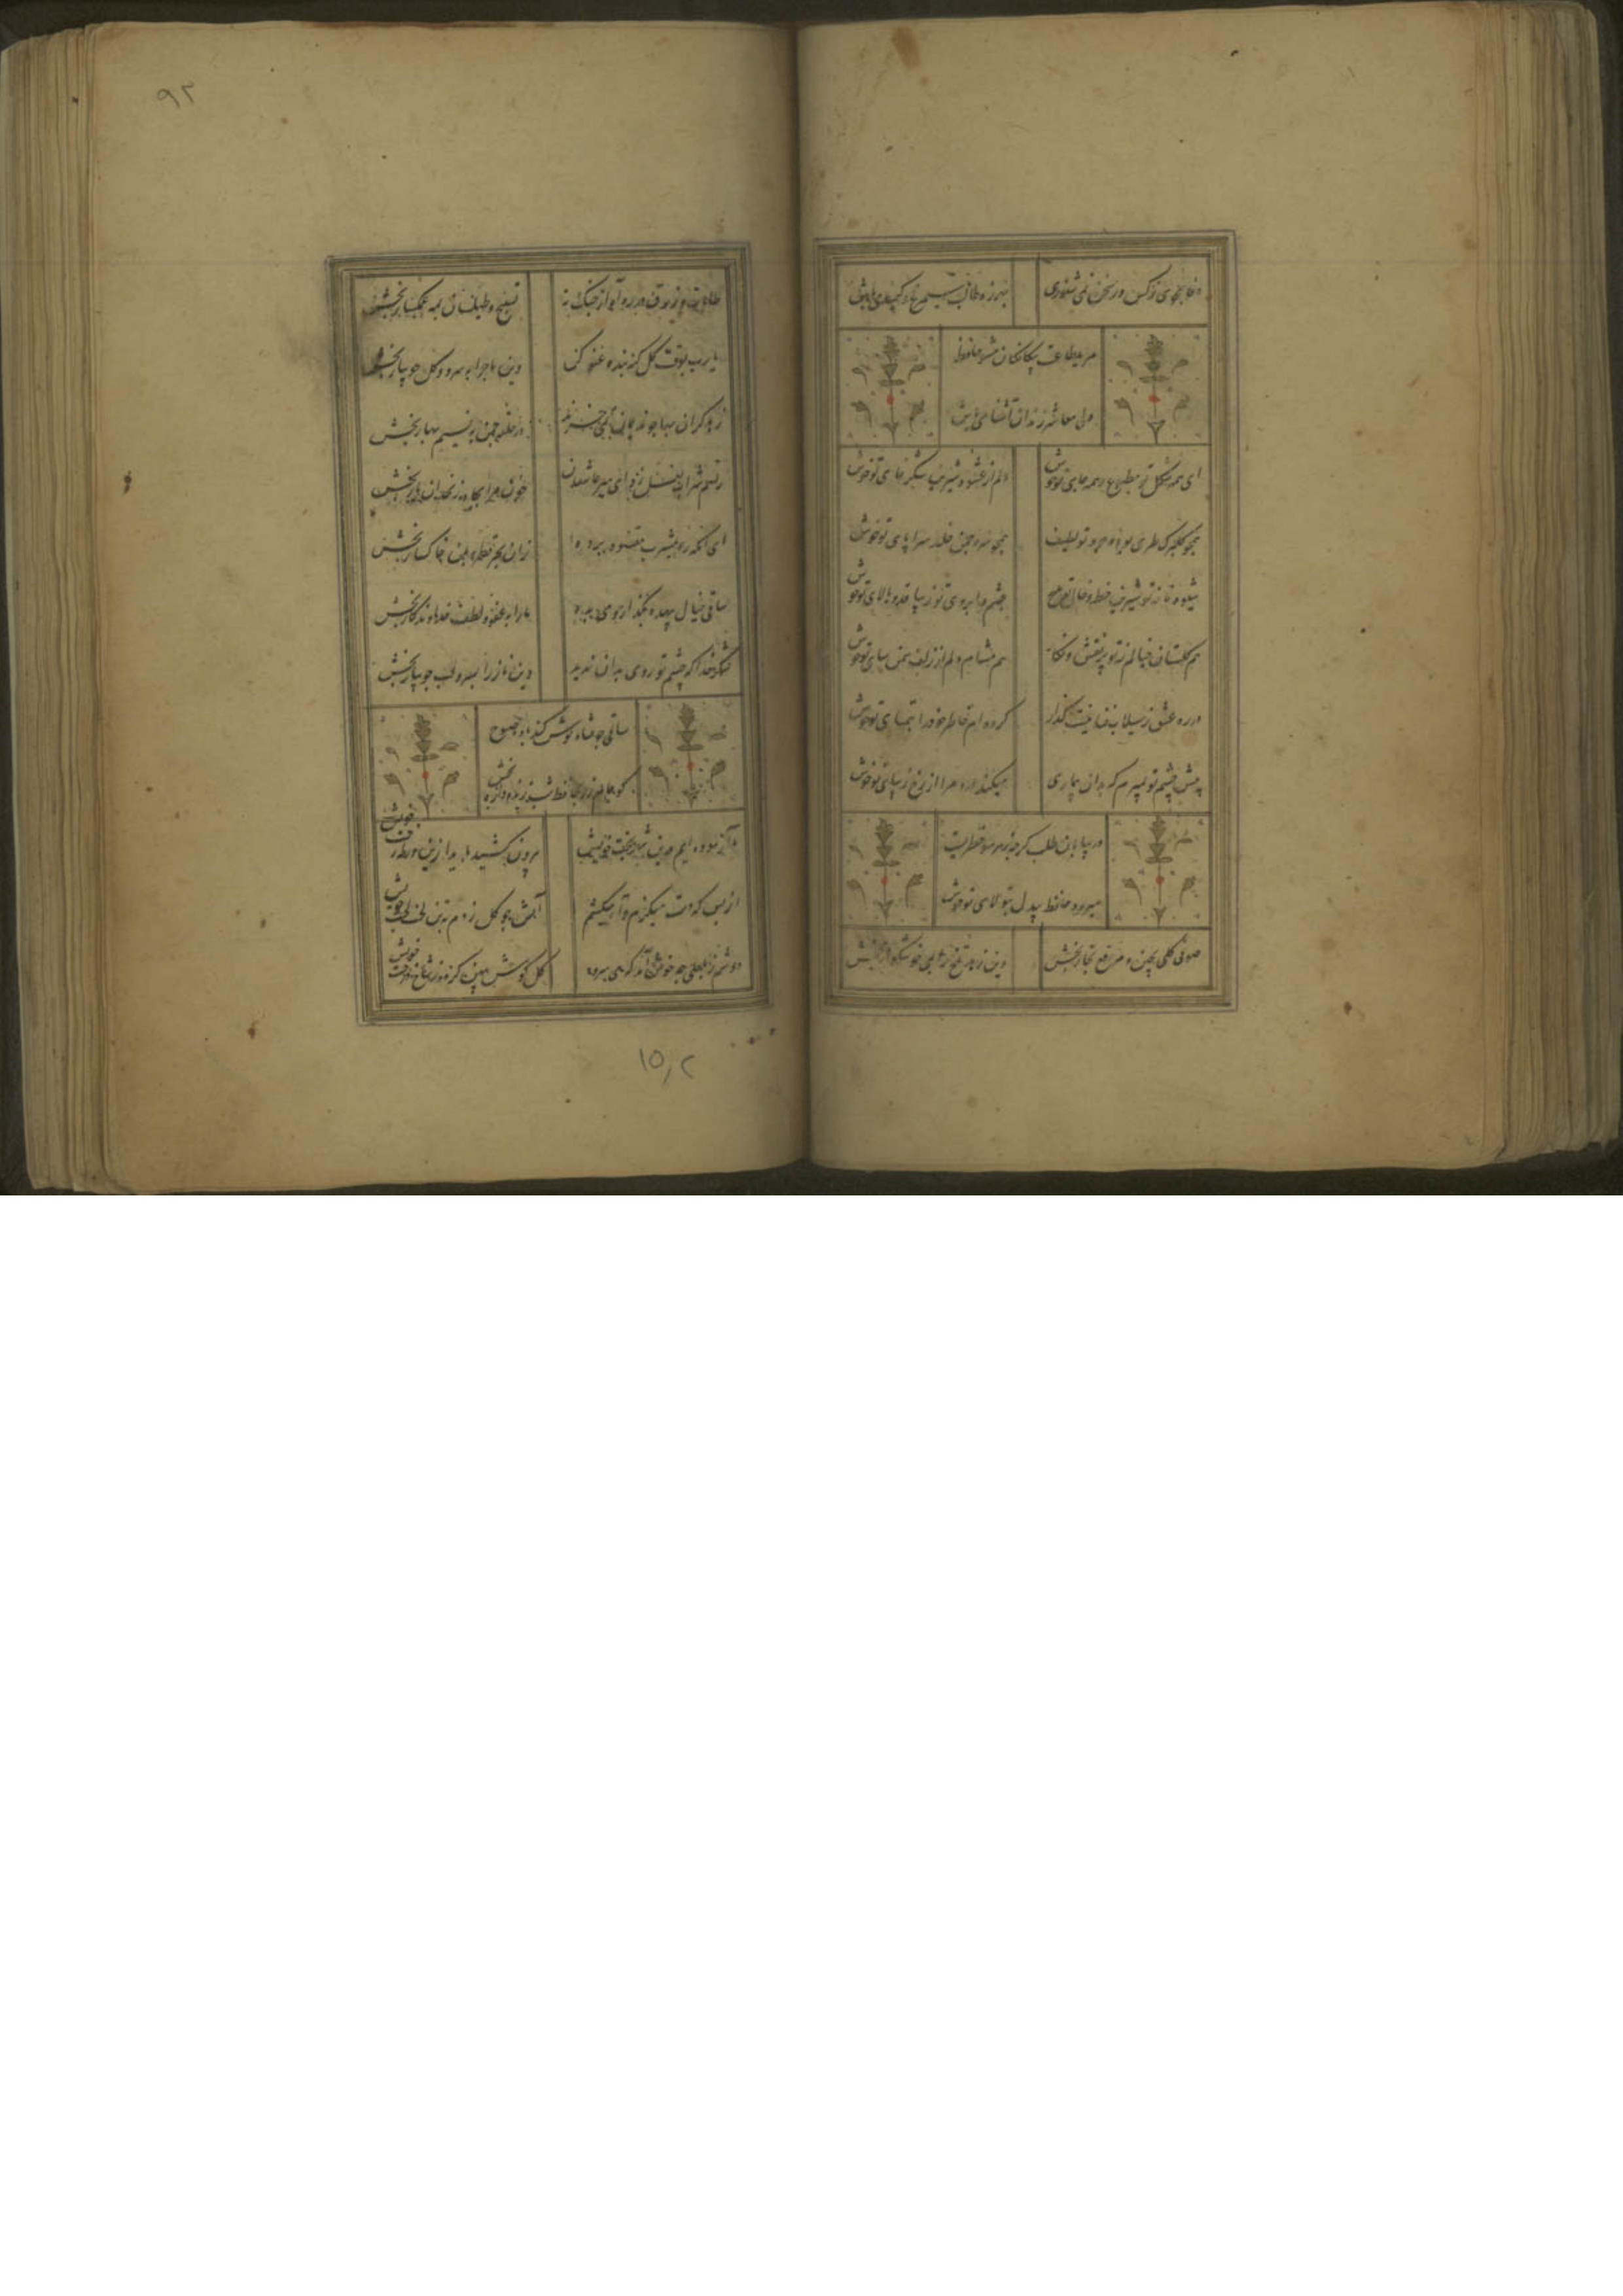 وفا مجوی ز کس ور سخن نمی شنوی
بهرزه طالب سیمرغ و کیمیا می باش
مرید طاعت بیگانگان مشو حافظ
ولی معاشر رندان آشنا می باش
ای همه شکل تو مطبوع و همه جای تو خوش
دلم از عشوه شیرین شکر خای تو خوش
همچو گلبرگ طری بود وجود تو لطیف
همچو سرو چمن خلد سراپای تو خوش
شیوه و ناز تو شیرین خط و خال تو ملیح
چشم و ابروی تو زیبا قد و بالای تو خوش
هم گلستان خیالم ز تو پر نقش و نگار
هم مشام دلم از زلف سمن سای تو خوش
در ره عشق ز سیلاب فنا نیست گذار
کرده ام خاطر خود را بتمنای تو خوش
پیش چشم تو بمیرم که بدان بیماری
میکند درد مرا از رخ زیبای تو خوش
در بیابان طلب گرچه ز هر سو خطریست
میرود حافظ بیدل بتولای تو خوش
صوفی گلی بچین و مرقع بخار بخش
وین زهد تلخ را بمی خوشگوار بخش
طامات و زرق در ره آواز چنگ نه
تسبیح و طیلسان بمی و میگسار بخش
یا رب بوقت گل گنه بنده عفو کن
وین ماجرا بسرو و گل جویبار بخش
زهد گران که شاهد و ساقی نمی خرند
در حلقه چمن به نسیم بهار بخش
رهم شراب لعل زد ای میر عاشقان
خون مرا بچاه زنخدان یار بخش
ای آنکه ره بمشرب مقصود برده
زان بحر قطره بمن خاکسار بخش
ما را بعفو و لطف خداوندگار بخش
شکر خدا که چشم تو روی بدان ندید
ساقی چو شاه نوش کند باده صبوح
گو جام زر بحافظ شب زنده دار بخش
ما آزموده ایم درین شهر بخت خویش
بیرون کشید باید ازین ورطه رخت خویش
از بس که دست میگزم و آه میکشم
آتش چو گل زدم بتن لخت لخت خویش
دوشم ز بلبلی چه خوش آمد که می سرود
گل گوش پهن کرده ز شاخ درخت خویش
۹۳
۱۵٫۲